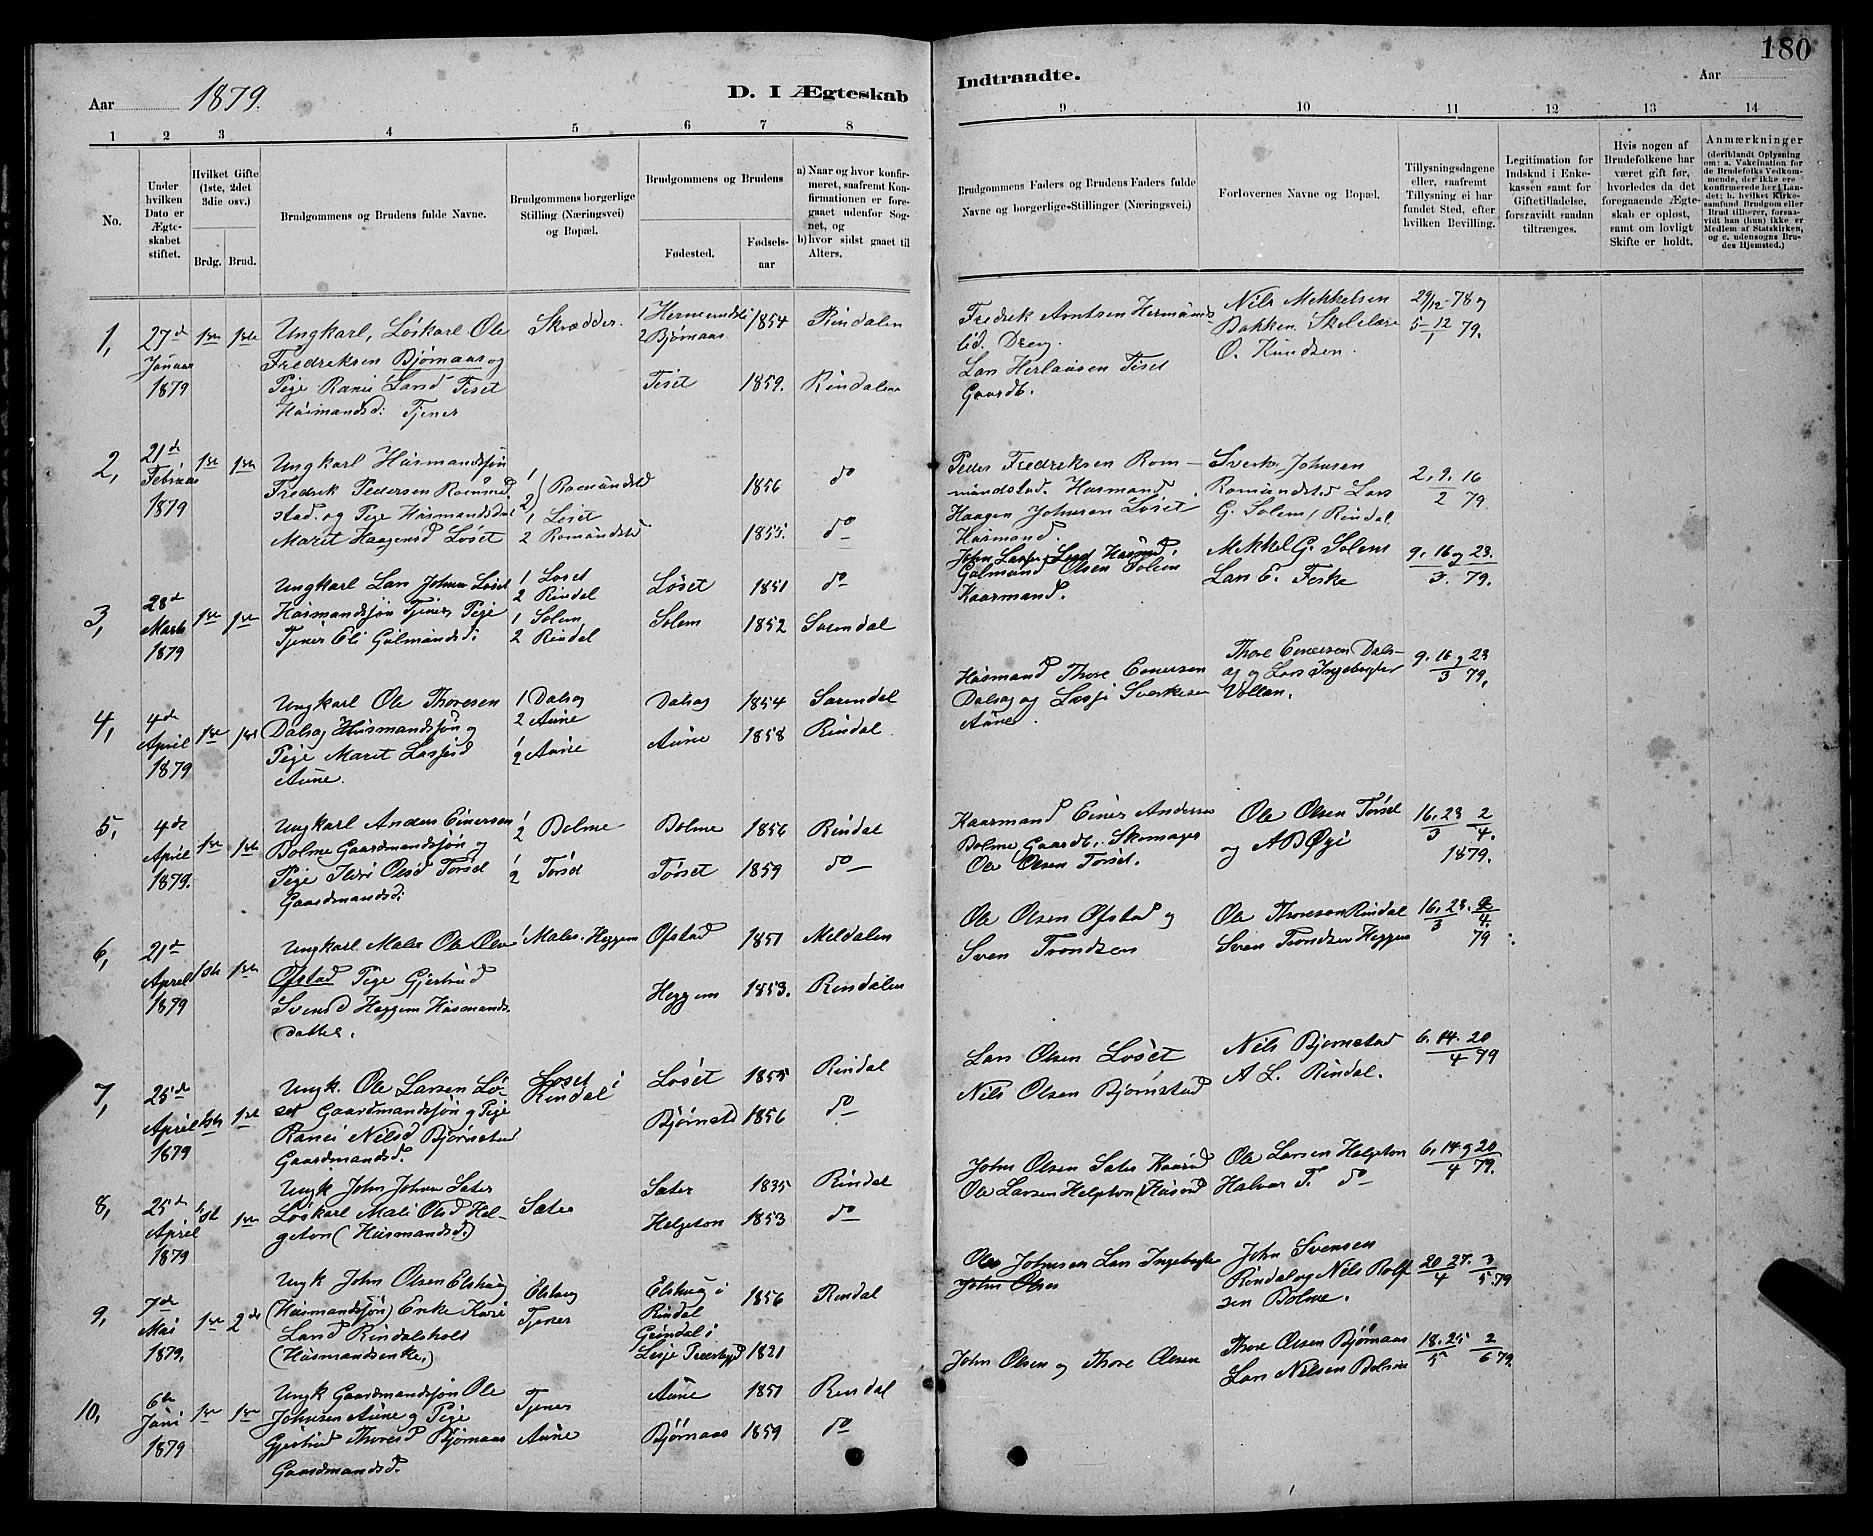 180
Aar 1879.
D. I Ægteskab
Indtraadte.
Aar
1 2 3 4 5 6 7 8
9 10 11 12 13 14
No.
Under hvilken Dato er Ægteskabet stiftet.
Hvilket Gifte (1ste, 2det 3die osv.)
Brdg. Brud.
Brudgommens og Brudens fulde Navne.
Brudgommens borgerlige Stilling (Næringsvei) og Bopæl.
Brudgommens og Brudens
Fødested.
Fødselsaar
a) Naar og hvor konfirmeret, saafremt Konfirmationen er foregaaet udenfor Sognet, og
b) hvor sidst gaaet til Alters.
Brudgommens Faders og Brudens Faders fulde Navne og borgerlige-Stillinger (Næringsvei.)
Forlovernes Navne og Bopæl.
Tillysningsdagene eller, saafremt Tillysning ei har fundet Sted, efter hvilken Bevilling.
Legitimation for Indskud i Enkekassen samt for Giftetilladelse, forsavidt saadan tiltrænges.
Hvis nogen af Brudefolkene har været gift før, hvorledes da det foregaaende Ægteskab er opløst, samt om lovligt Skifte er holdt.
Anmærkninger
(deriblandt Oplysning om: a. Vakcination for de Brudefolks Vedkommende, der ikke ere konfirmerede her i Landet; b. hvilket Kirkesamfund Brudgom eller Brud tilhører, forsaavidt han (hun) ikke er Medlem af Statskirken, og c. udensogns Brudes Hjemsted.)
1, 27de Januar 1879 1ste 1ste
Ungkarl, Løskarl Ole
Fredriksen Bjørnaas og
Pige Ranei Larsd Tiset
Husmandsd: Tjener
Skrædder.
2 Bjørnaas 1854 Rindalen
Tiset 1859. Rindalen
Fredrik Arntsen Hermands
lid. Dreng.
Lars Herlausen Tiset
Gaardb.
Nils Mekkelsen
Bakken. Skolelære
O. Knudsen.
29/12 - 78 og
5 - 12/1 79.
2, 21de Februar 1879 1ste 1ste
Ungkarl Husmandssøn
Fredrik Pedersen Romund
stad. og Pige Husmandsdat
Marit Haagensd Løset
1 2 Romundstd
1 Løset
2 Romundstd
1856 do
1855. do
Peder Fredriksen Rom-
mundstad. Husmand.
Haagen Johnsen Løset
Husmand.
Sverke Johnsen
Romundstad Lars
G. Solem, Rindal
2, 9. 16/2 79.
3, 28de Marts 1879 1ste 1ste
Ungkarl Lars Johnsen Løset
Husmandssøn Tjener, Pige
Tjener Eli Gulmundsd:
1 Løset
2 Rindal
1 Solem
2 Rindal
Løset 1851 do
Solem 1852 Surendal
Gulmund Olsen Solem
Kaarmand.
Mekkel G. Solem
Lars E. Feske
9, 16 og 23./3. 79.
4, 4de April 1879 1ste 1ste
Ungkarl Ole Thoresen
Dalsag Husmandssøn og
Pige Marit Lasjesd
Aune.
1 Dalsag
2 Aune
1 2 Aune
Dalsag 1854 Surendal
Aune 1858 Rindal.
Husmand Thore Einersen
Dalsag og Lasje Sverkesen
Aune.
Thore Einersen Dals-
ag og Lars Ingebrigtsen
Vollan.
9. 16 og 23/3 79.
5, 4de April 1879. 1ste 1ste
Ungkarl Anders Einersen
Bolme Gaardmandssøn og
Pige Ildri Olsd Tørset
Gaardmandsd:
1 2 Bolme
1 2 Tørset
Bolme 1856 Rindal
Tørset 1859 do
Kaarmand Einer Andersen
Bolme, Gaardb., Skomager
Ole Olsen Tørset.
Ole Olsen Tørset
og A B Øye
16, 23/3 2/4. 1879.
6, 21de April 1879 1ste 1ste
Ungkarl Maler Ole Olsen
Ofstad Pige Gjertrud
Svensd Heggem Husmands-
datter.
Maler. Heggem
Ofstad 1851 Meldalen
Heggem 1853. Rindalen
Ole Olsen Ofstad og
Sven Trondsen
Ole Thoresen Rindal
Sven Trondsen Heggem
16, 23./3 2/4. 79
7, 25de April 1879 1ste 1ste
Ungk. Ole Larsen Lø-
set Gaardmandssøn og Pige
Ranei Nilsd Bjørnstad
Gaardmandsd.
Løset i
Rindal
Løset 1855 Rindal
Bjørnstd 1856 do
Lars Olsen Løset
Nils Olsen Bjørnstad
Nils Bjørnstad
A L. Rindal.
6. 14. 20/4 79
8, 25de April 1879 1st 1ste
Ungk John Johnsen Sæter
Løskarl Mali Olsd Hel-
geton (Husmandsd.)
Sæter
Sæter 1835 Rindal
Helgeton 1853 do
John Olsen Sæter Kaarmd
Ole Larsen Helgeton (Husmd
Ole Larsen Helgeton
Halvar T. do
6, 14 og 20/4 79.
9, 7de Mai 1879. 1ste 2de
Ungk John Olsen Elshaug
(Husmandssøn) Enke Kari
Larsd Rindalshold
(Husmandsenke,)
Elshaug
Tjener
Elshaug i
Rindal 1856 Rindal
Grindal i
1821
Ole Johnsen Lars Ingebrigtsen
John Olsen
John Svensen
Rindal og Nils Rolf
sen Bolme.
20 27./4 3/5. 79
10, 6te Juni 1879 1ste 1ste
Ungk Gaardmandssøn Ole
Johnsen Aune og Pige
Gjertrud Thoresd Bjørnaas
Gaardmandsd.
Tjener
Aune
Aune 1851 Rindal
Bjørnaas 1859 do
John Olsen og Thore Olsen
Thore Olsen Bjørnaas
Lars Nilsen Bolme
18. 25/5 2/6 79.